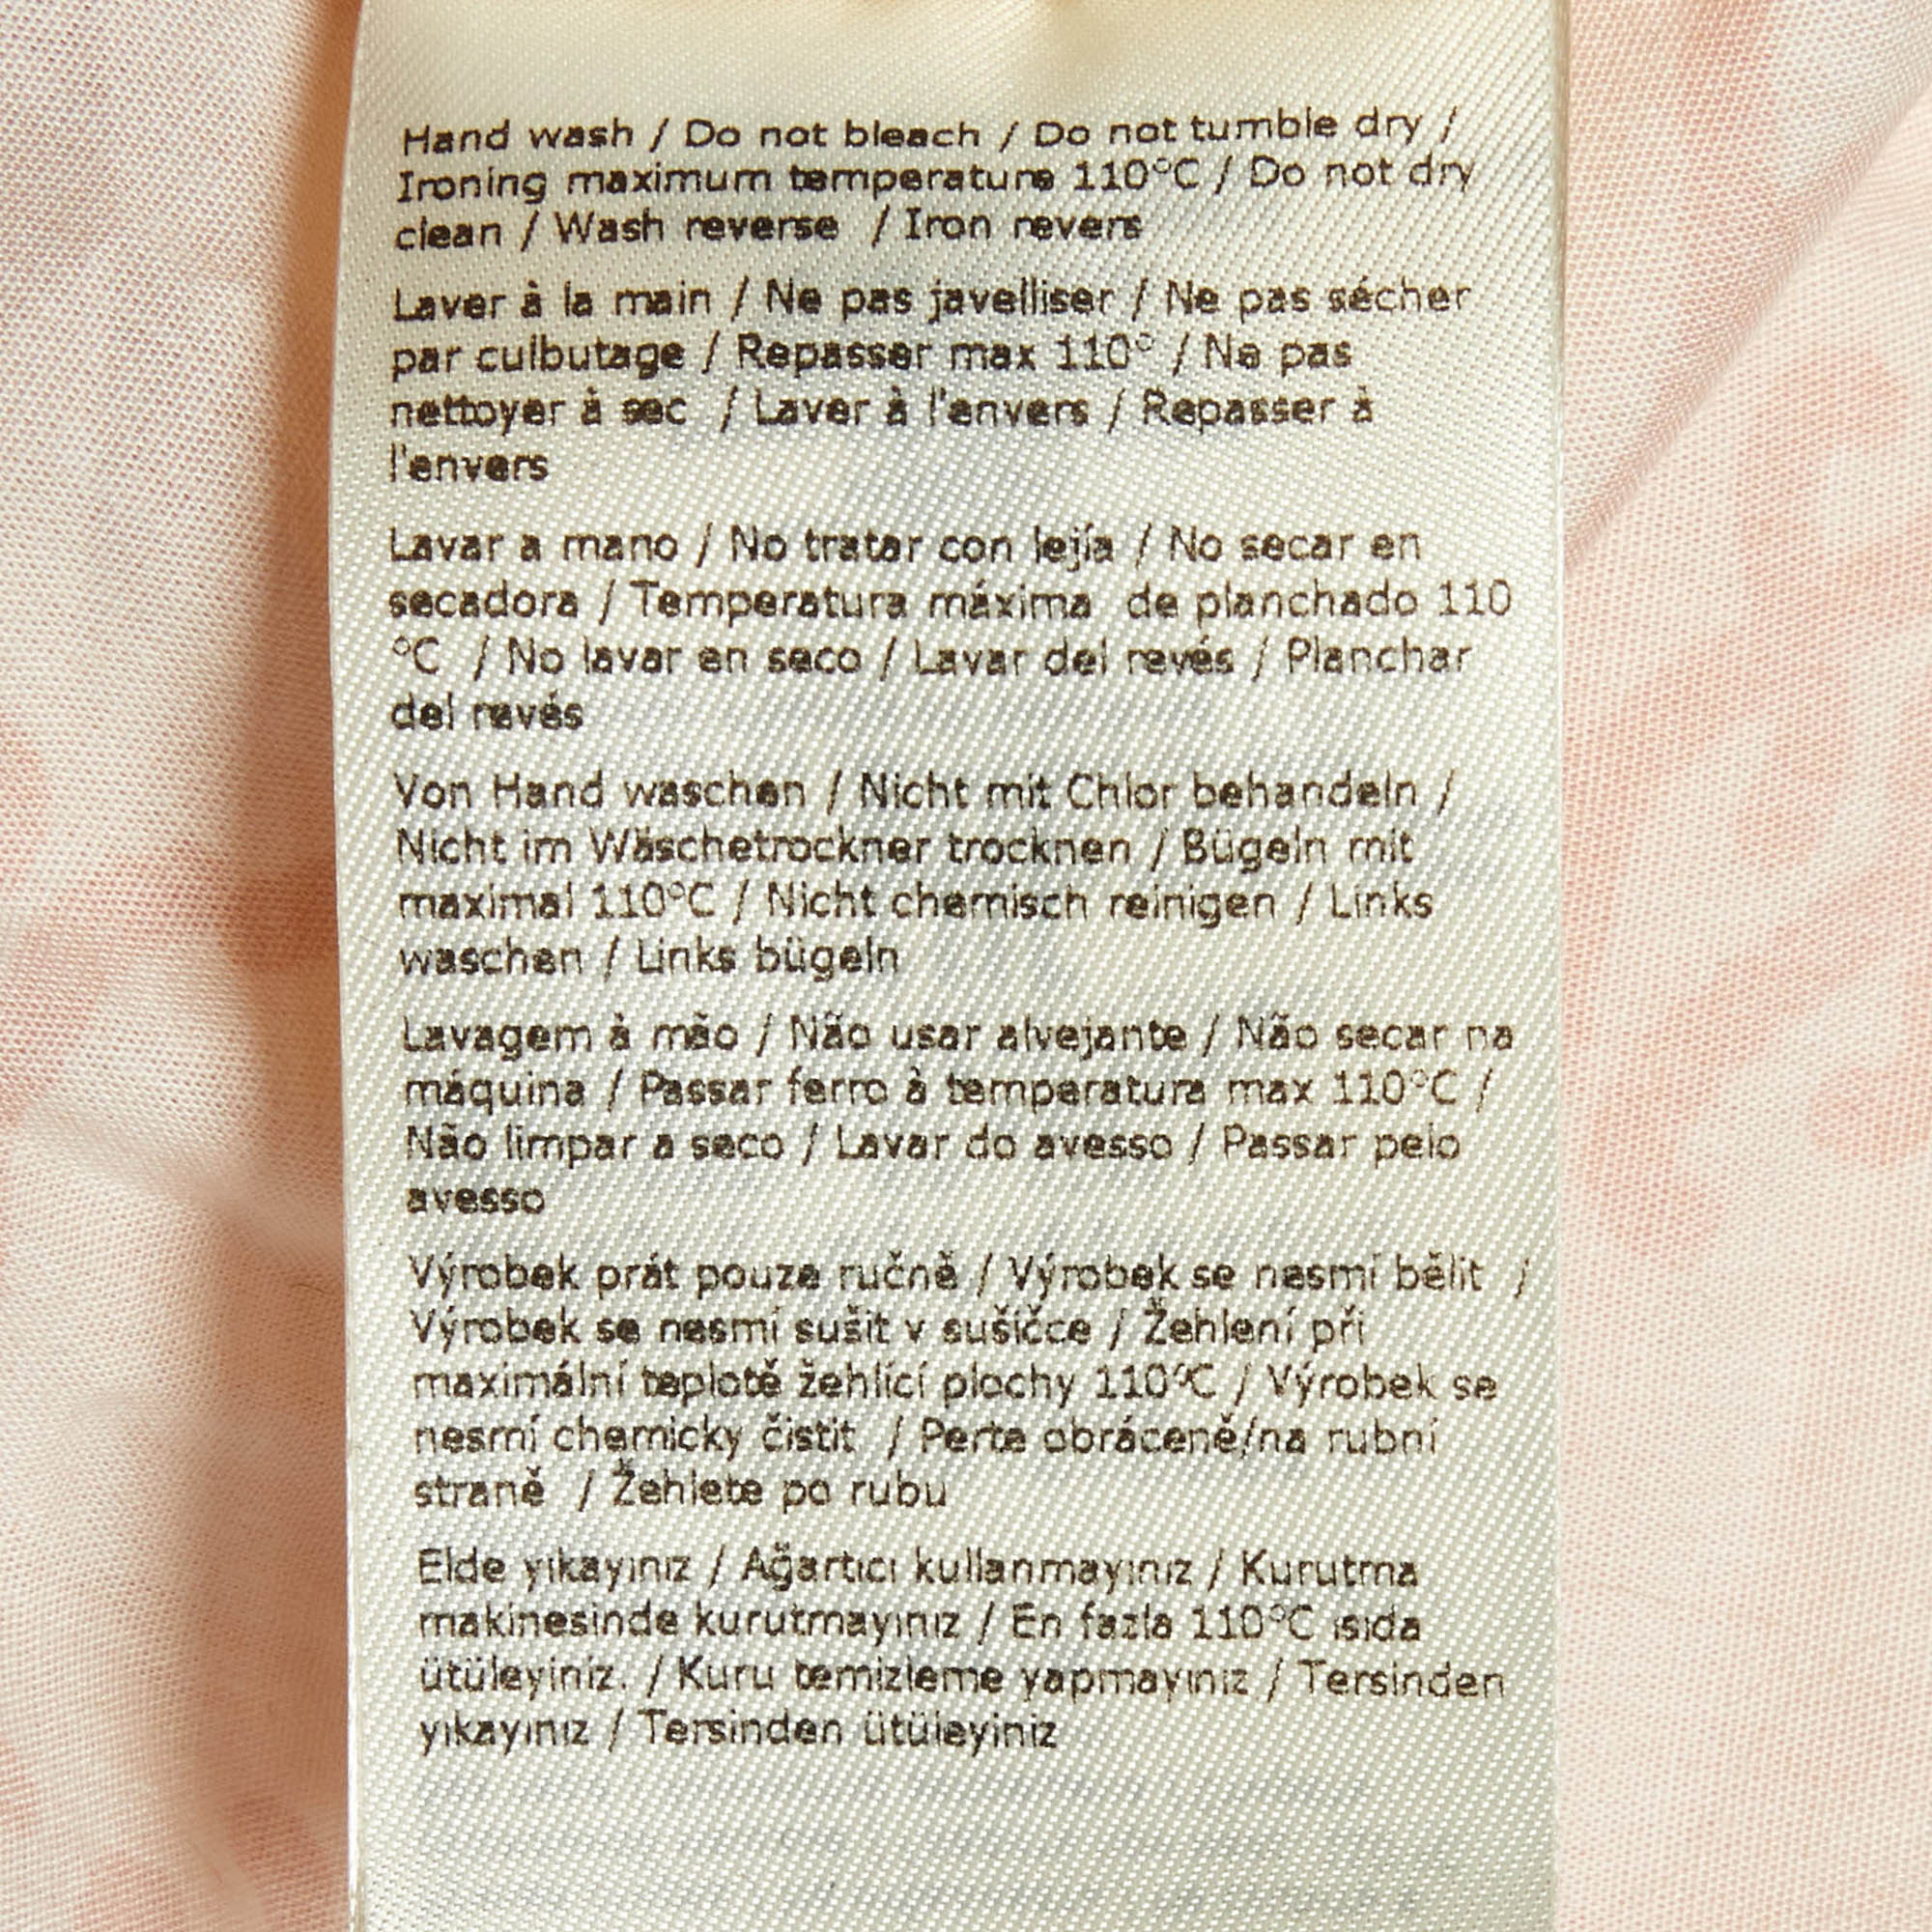 Hand wash / Do not bleach / Do not tumble dry /
Ironing maximum temperature 110°C / Do not dry
clean / Wash reverse / Iron revers
Laver à la main / Ne pas javelliser / Ne pas sécher
par culbutage / Repasser max 110° / Ne pas
nettoyer à sec / Laver à l'envers / Repasser à
l'envers
Lavar a mano / No tratar con lejía / No secar en
secadora / Temperatura máxima de planchado 110
°C / No lavar en seco / Lavar del revés / Planchar
del revés
Von Hand waschen / Nicht mit Chlor behandeln /
Nicht im Wäschetrockner trocknen / Bügeln mit
maximal 110°C / Nicht chemisch reinigen / Links
waschen / Links bügeln
Lavagem à mão / Não usar alvejante / Não secar na
máquina / Passar ferro à temperatura max 110°C /
Não limpar a seco / Lavar do avesso / Passar pelo
avesso
Výrobek prát pouze ručně / Výrobek se nesmí bělit /
Výrobek se nesmí sušit v sušičce / Žehlení při
maximální teplotě žehlící plochy 110°C / Výrobek se
nesmí chemicky čistit / Perte obráceně/na rubní
straně / Žehlete po rubu
Elde yıkayınız / Ağartıcı kullanmayınız / Kurutma
makinesinde kurutmayınız / En fazla 110°C ısıda
ütüleyiniz. / Kuru temizleme yapmayınız / Tersinden
yıkayınız / Tersinden ütüleyiniz